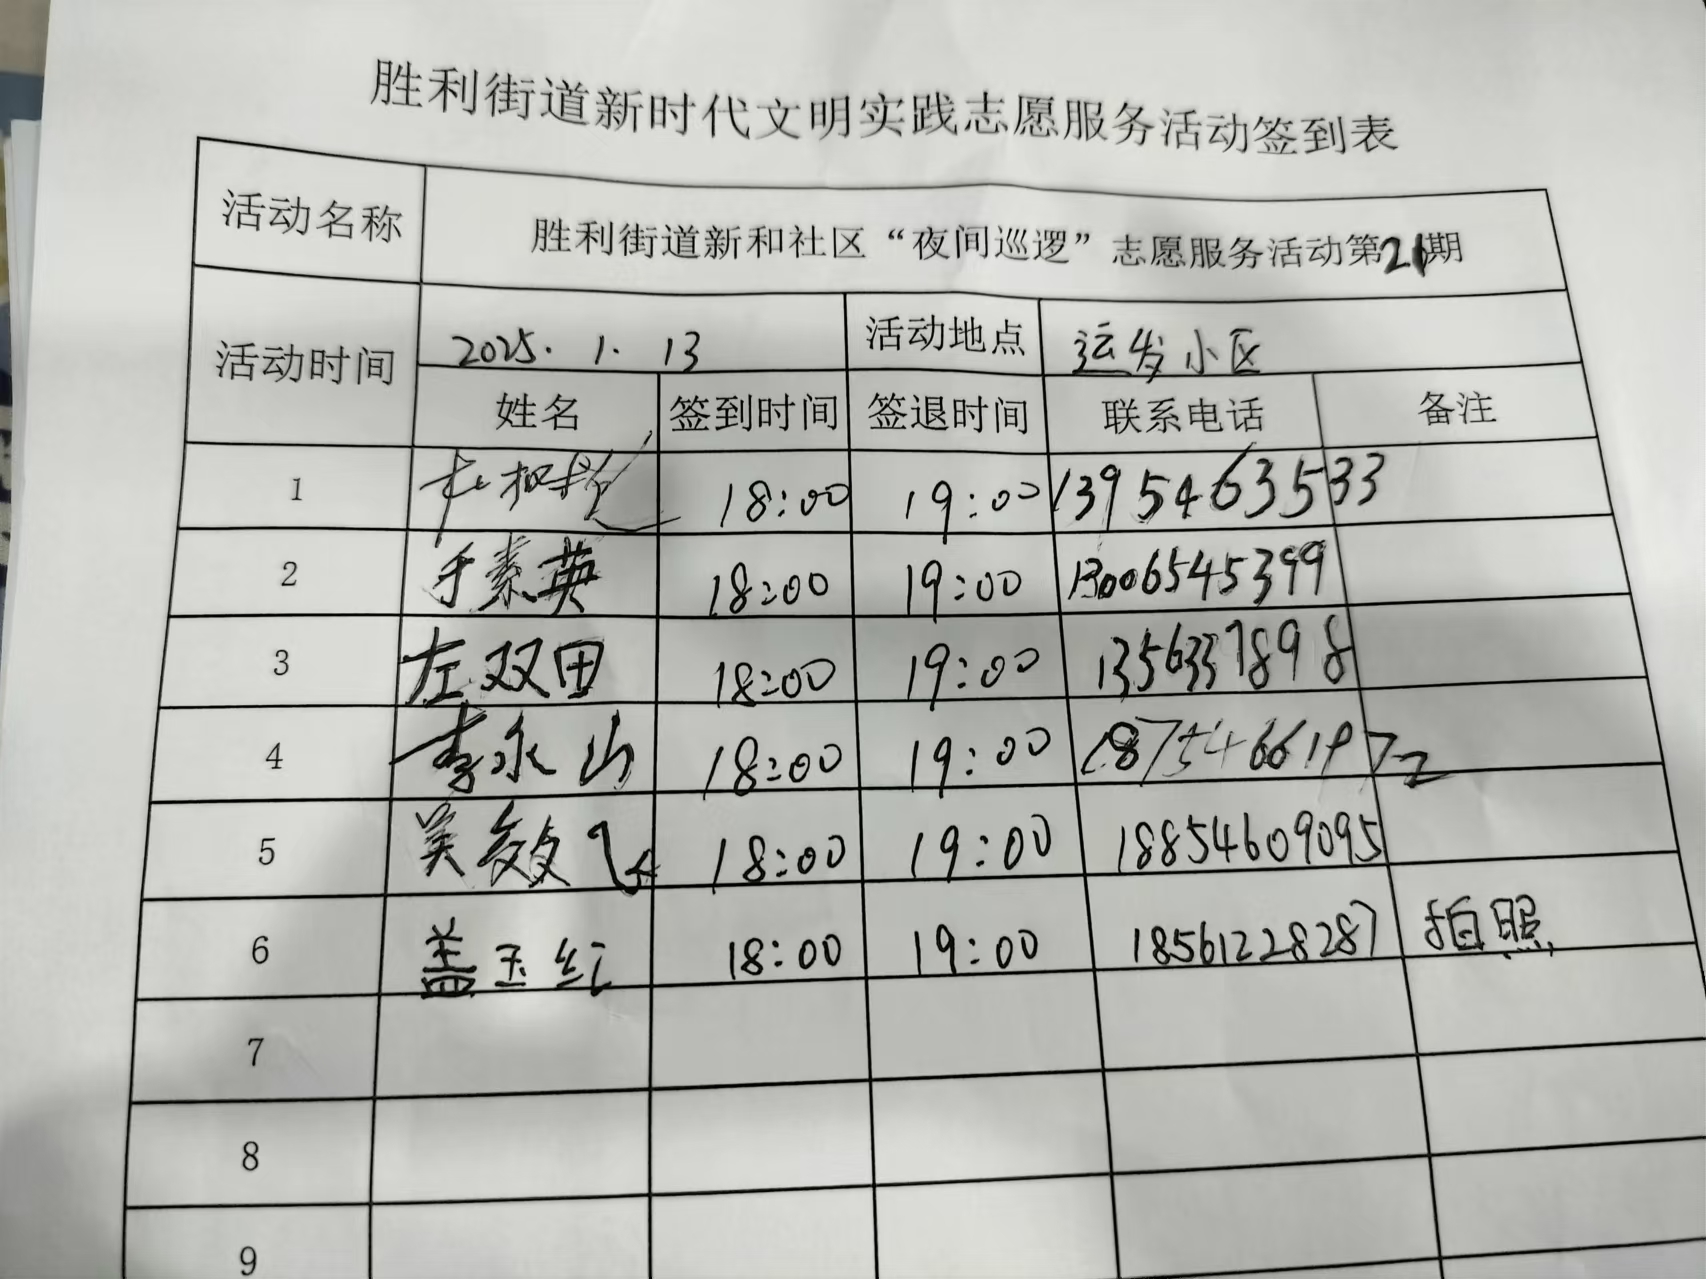 胜利街道新时代文明实践志愿服务活动签到表
活动名称 胜利街道新和社区“夜间巡逻”志愿服务活动第21期
活动时间 2025.1.13 活动地点 运发小区
姓名 签到时间 签退时间 联系电话 备注
1 18:00 19:00 13954635333
2 于素英 18:00 19:00 13006545399
3 左双田 18:00 19:00 1356337898
4 李永山 18:00 19:00 18754661972
5 18:00 19:00 18854609095
6 盖玉红 18:00 19:00 18561228287 拍照
7
8
9